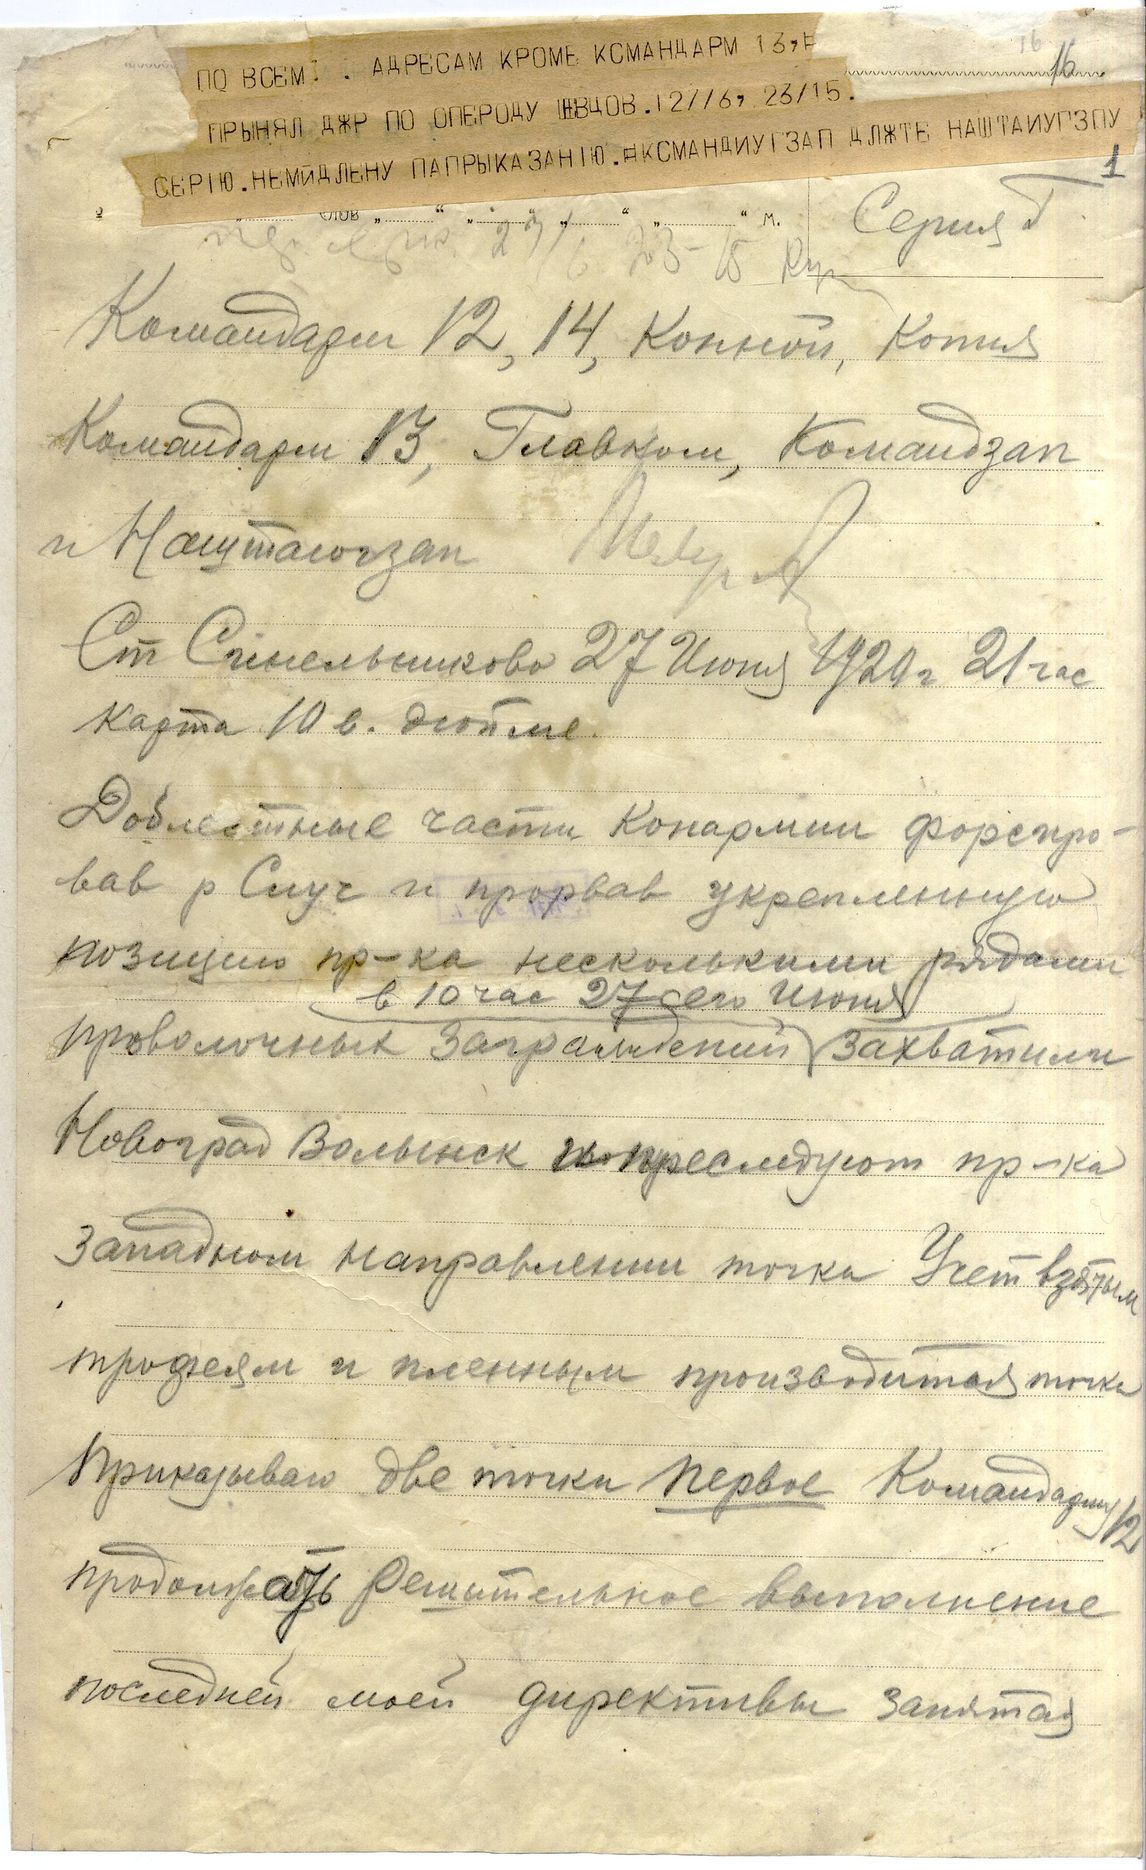 16
16
ПО ВСЕМ: . АДРЕСАМ КРОМЕ КСМАНДАРМ 13,
ПРЫНЯЛ ДЖР ПО ОПЕРОДУ ШВЦОВ.127/6, 23/15.
СЕРIЮ.НЕМИДЛЕНУ ПАПРЫКАЗАНIЮ. КСМАНДИУГЗАП ДЛЖТЕ НАШТАИУГЗПУ
1
слов „ “ „ “ „ “ „ “ м.
23-15
Серия Г
Командарм 12, 14, Конной, Копия
Командарм 13, Главком, Командзап
и Наштаюгзап
Ст Синельниково 27 Июня 1920 г 21 час
карта 10 в. дюйме.
Доблестные части Конармии форсиро-
вав р Случ и прорвав укрепленную
позицию пр-ка несколькими рядами
в 10 час 27 сего Июня
проволочных заграждений захватили
Новоград Волынск преследуют пр-ка
Западном направлении точка Учет взятым
трофеям и пленным производится точка
Приказываю две точки первое Командарму 12
продолжать решительное выполнение
последней моей директивы запятая